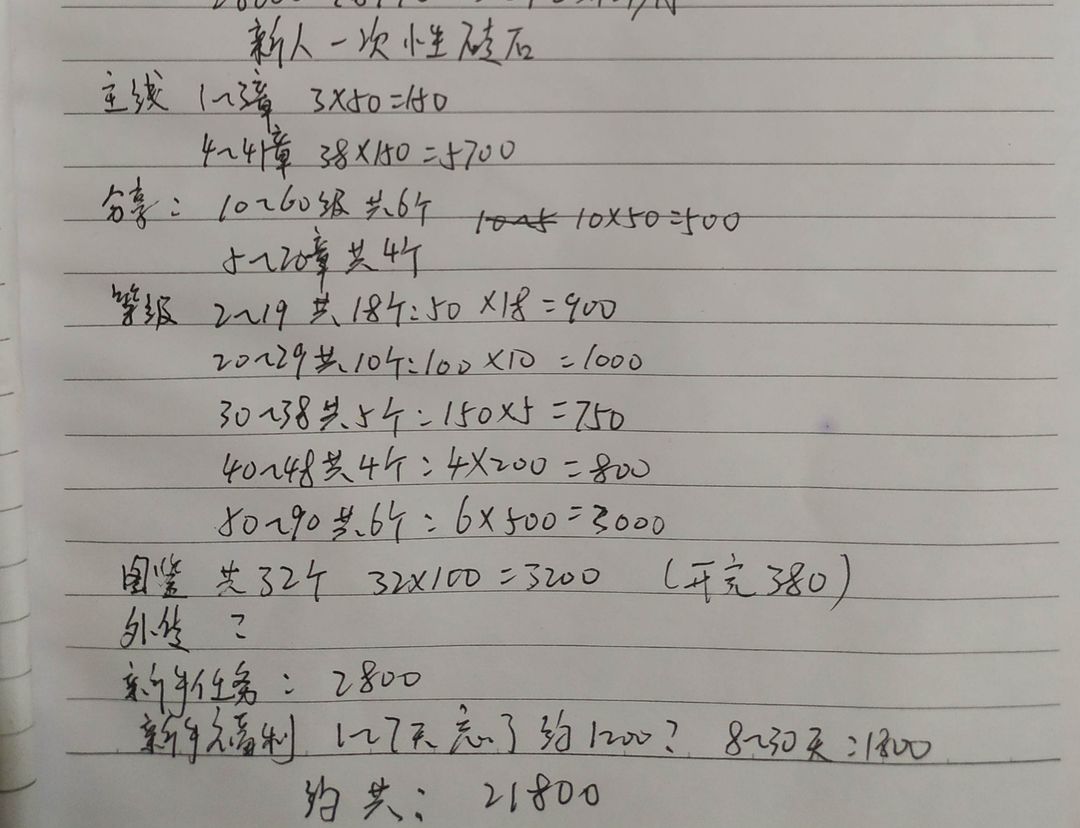 新人一次性硅石
主线 1~3章 3×50=150
4~41章 38×150=5700
分享: 10~60级 共6个 10×50=500
5~20章 共4个
等级 2~19 共18个:50×18=900
20~29共10个:100×10=1000
30~38共5个:150×5=750
40~48共4个:4×200=800
50~90共6个:6×500=3000
图鉴 共32个 32×100=3200 (开完380)
外传 ?
新手任务: 2800
新手福利 1~7天忘了约1200? 8~30天:1800
约共: 21800